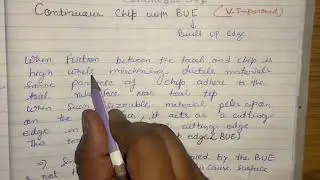 Continuous Chip with BUE (V. Important)
Built Up Edge
When friction between the tool and chip is
high while machining ductile materials
Some particle of chip adhere to the
tool rake face near tool tip
When such sizeable material piles upon
on the, it acts as a cutting
edge in cutting edge
This edge BUE)
by the BUE
is not cause surface